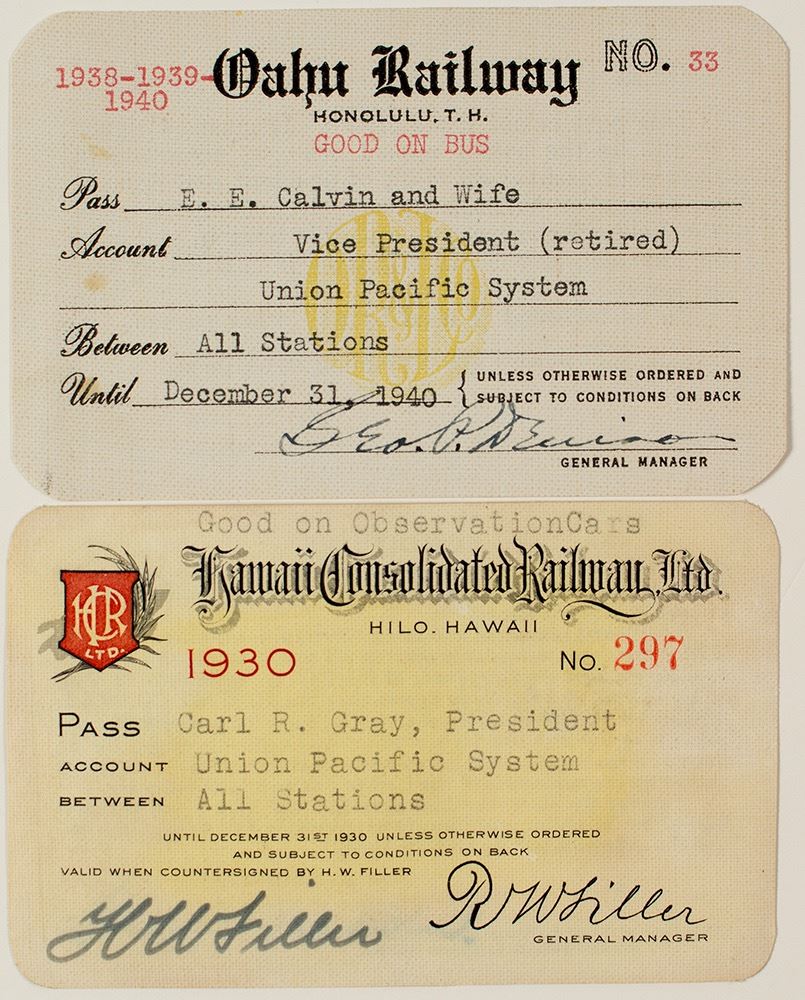 1938-1939-
1940
Oahu Railway
NO. 33
HONOLULU, T. H.
GOOD ON BUS
Pass E. E. Calvin and Wife
Account Vice President (retired)
Union Pacific System
Between All Stations
Until December 31, 1940 { UNLESS OTHERWISE ORDERED AND
SUBJECT TO CONDITIONS ON BACK
Geo. P. Denison
GENERAL MANAGER
Good on ObservationCars
Hawaii Consolidated Railway, Ltd.
HCR
LTD.
HILO. HAWAII
1930
No. 297
PASS Carl R. Gray, President
ACCOUNT Union Pacific System
BETWEEN All Stations
UNTIL DECEMBER 31ST 1930 UNLESS OTHERWISE ORDERED
AND SUBJECT TO CONDITIONS ON BACK
VALID WHEN COUNTERSIGNED BY H. W. FILLER
HW Filler
RW Filler
GENERAL MANAGER